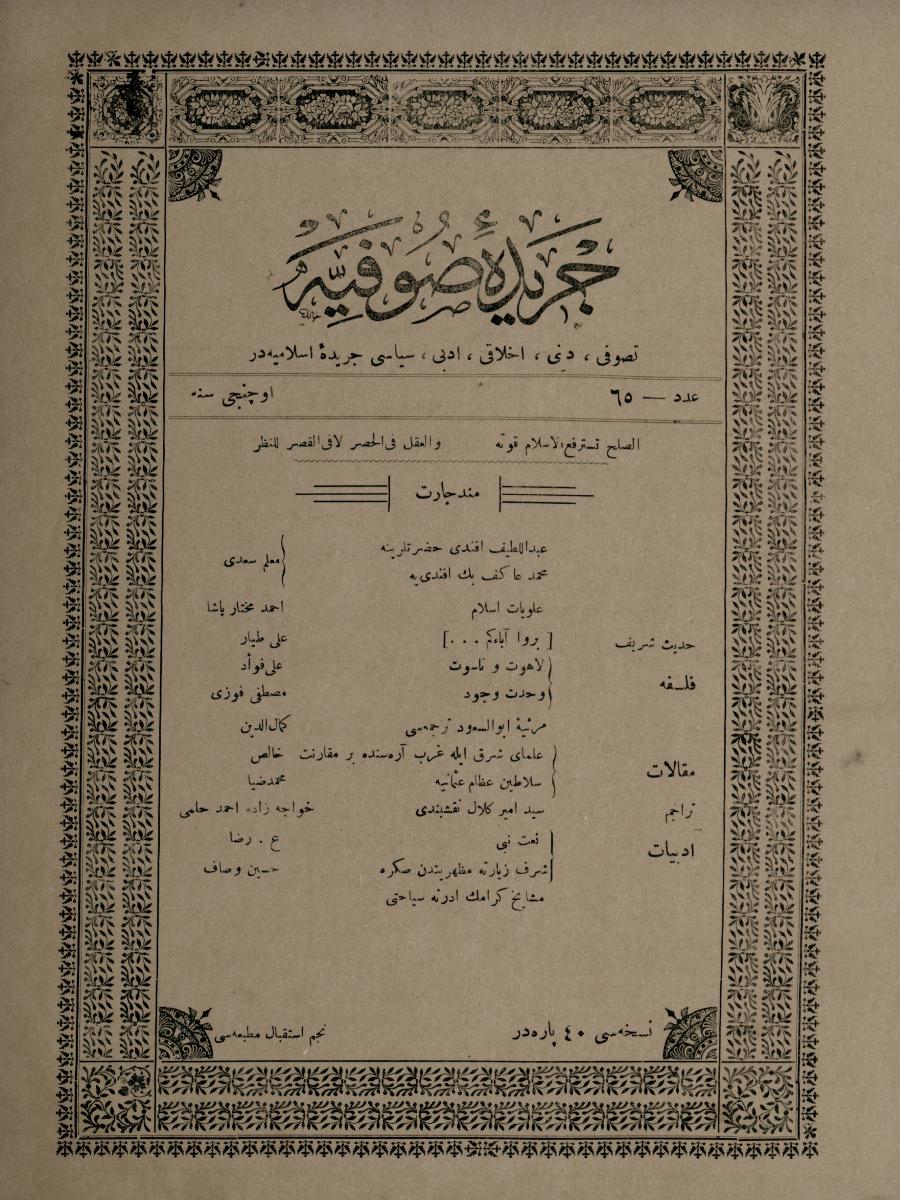 جريدهٔ صوفيه
تصوفی ، دينی ، اخلاقی ، ادبی ، سياسی جريدهٔ اسلاميه‌در
عدد — ٦٥ اوچنجی سنه
الصلح تسترفع الاسلام قوته والعقل فی الحصر لافی القصر للنظر
مندجارت
عبداللطيف افندی حضرتلرينه
محمد عاكف بك افندی‌يه
معلم سعدی
علويات اسلام احمد مختار پاشا
حديث شريف [ بروا آباءكم . . .] علی طيار
فلسفه لاهوت و ناسوت علی فوأد
وحدت وجود مصطفی فوزی
مرثيهٔ ابوالسعود ترجمه‌سی كمال‌الدين
مقالات علمای شرق ايله غرب آره‌سنده بر مقارنت خالص
سلاطين عظام عثمانيه محمدضيا
تراجم سيد امير كلال نقشبندی خواجه زاده احمد حلمی
ادبيات نعت نبی ع . رضا
شرف زيارته مظهريتدن صكره حسين وصاف
مشايخ كرامك ادرنه سياحتی
نسخه‌سی ٤٠ پاره‌در نجم استقبال مطبعه‌سی